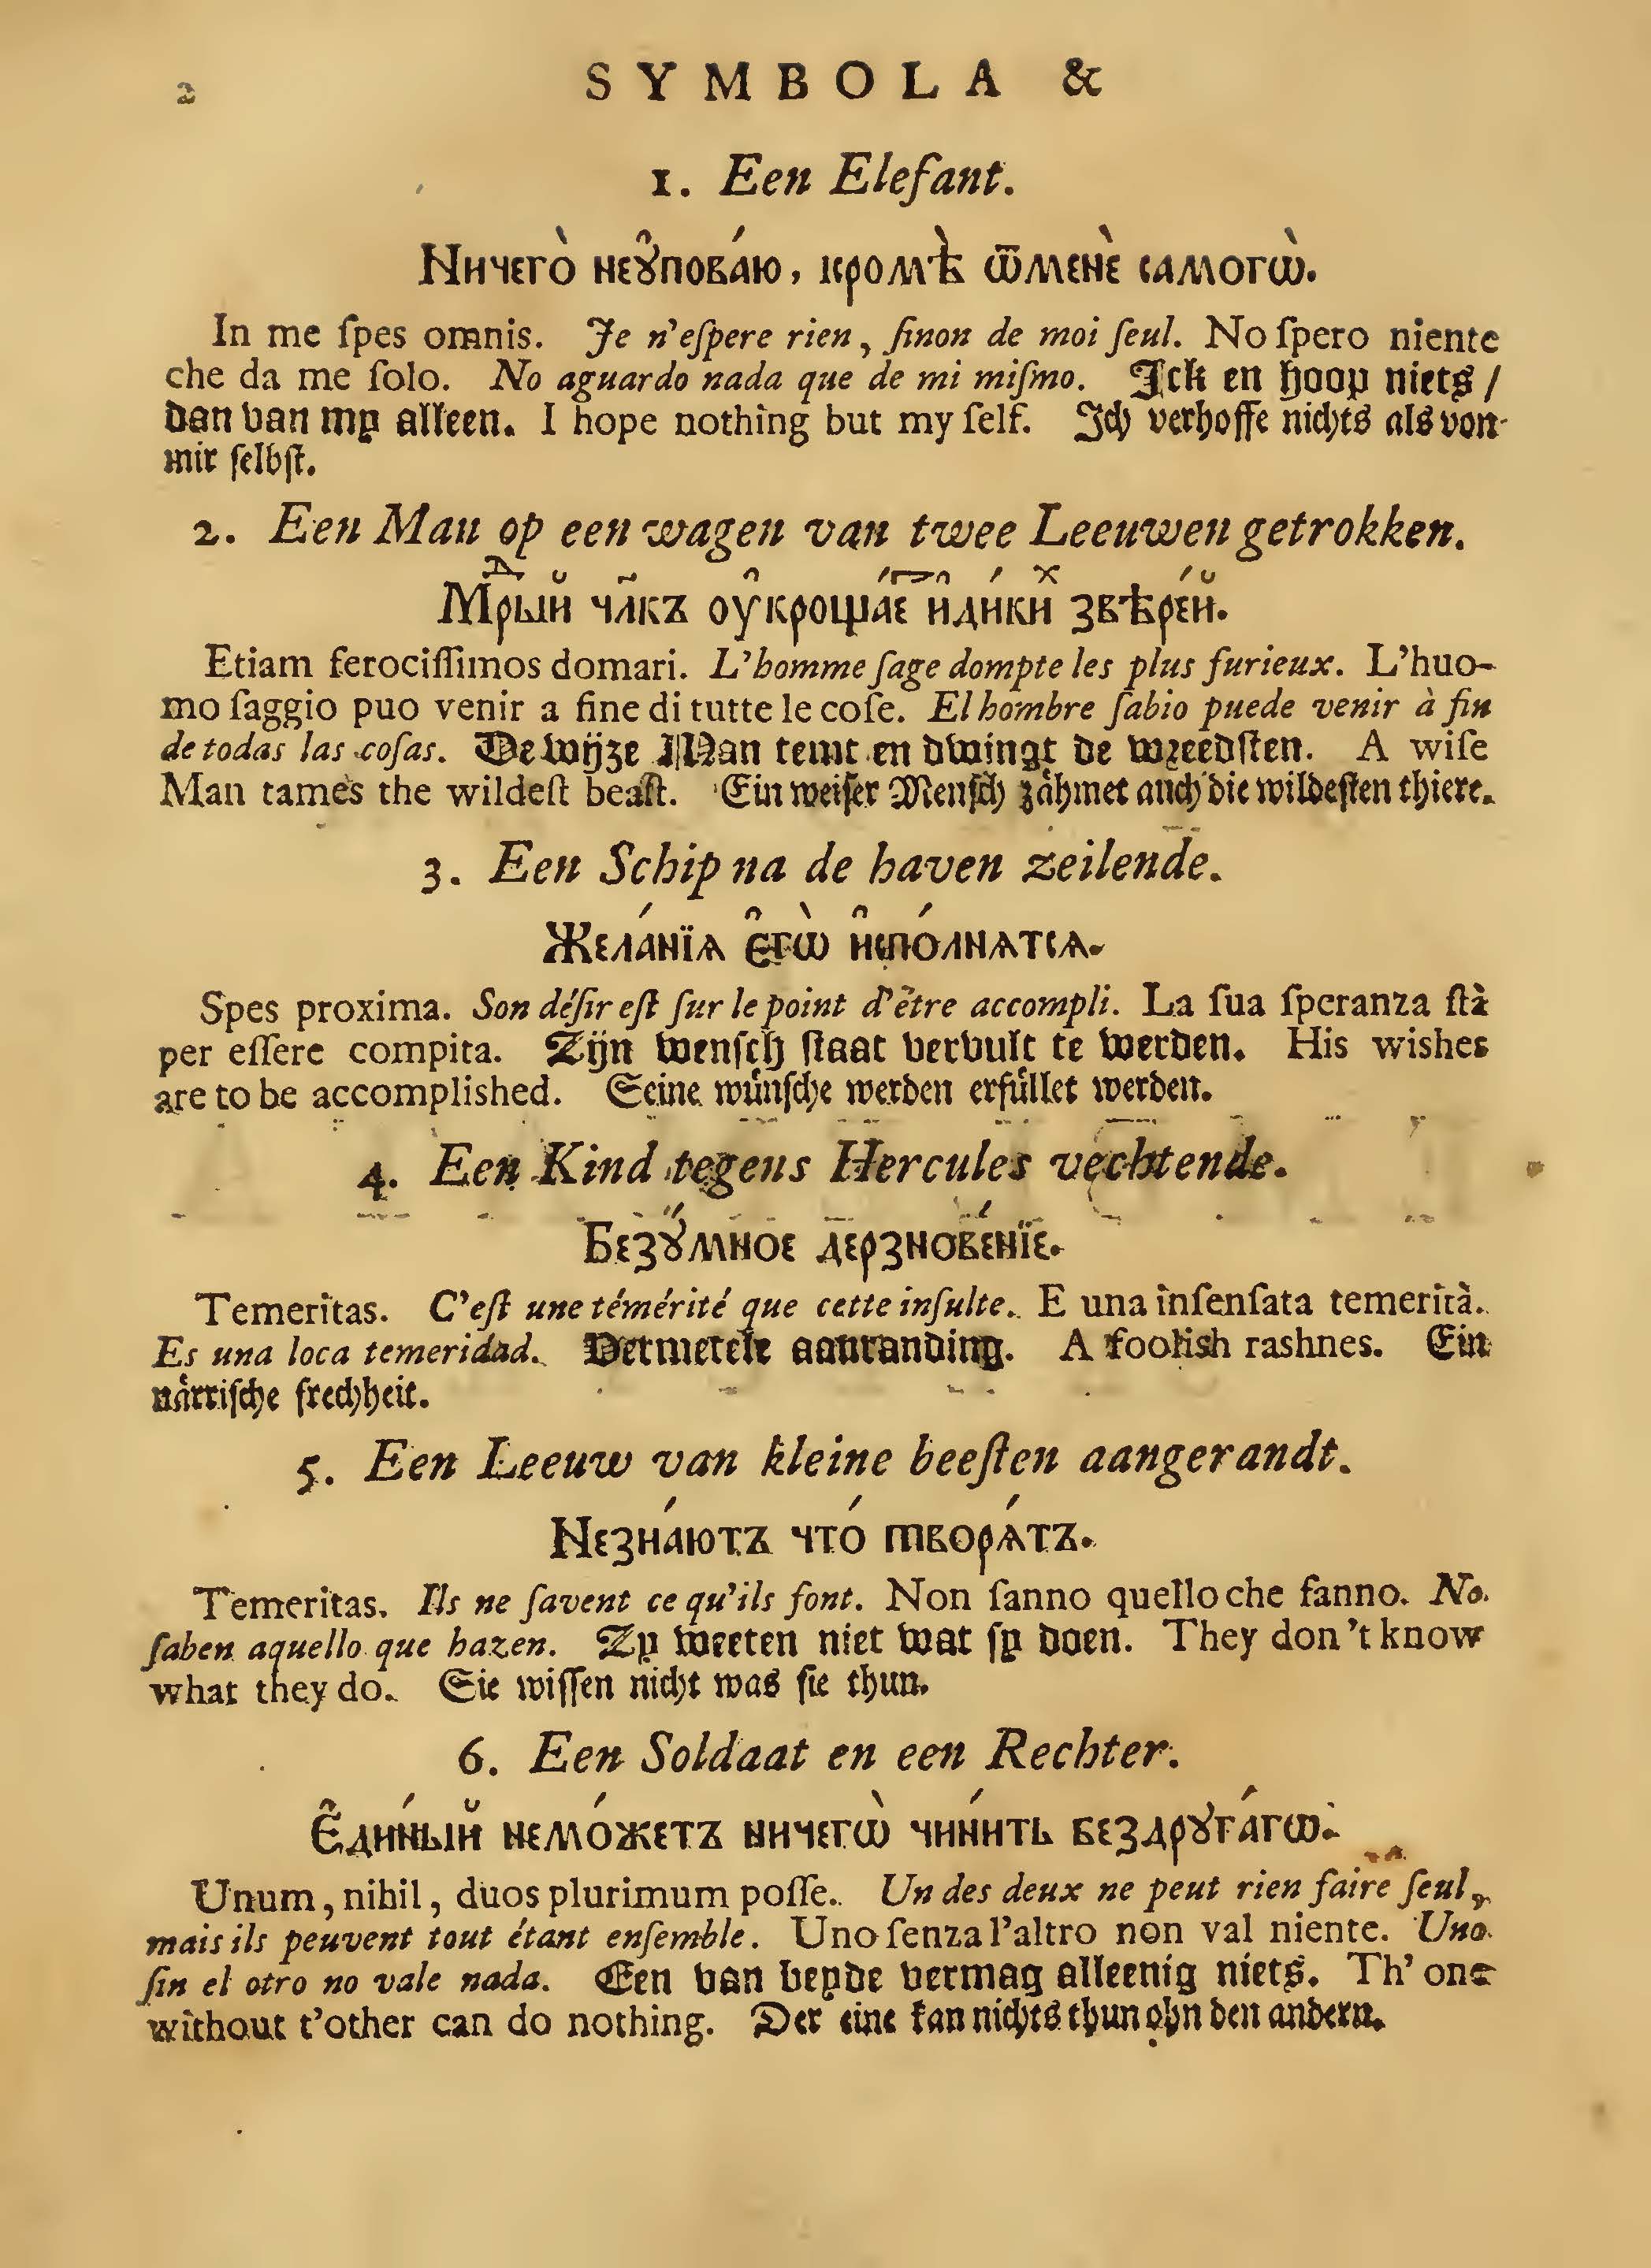 2 SYMBOLA &
1. Een Elefant.
Ничего̀ неꙋ̑пова́ю, кромѣ̀ ѿменѐ самогѡ̀.
In me ſpes omnis. Je n'eſpere rien, ſinon de moi ſeul. No ſpero niente
che da me ſolo. No aguardo nada que de mi miſmo. Ick en hoop niets /
dan van my alleen. I hope nothing but my ſelf. Ich verhoffe nichts als von
mir ſelbſt.
2. Een Man op een wagen van twee Leeuwen getrokken.
Мрⷣый чл҃къ оу̑кроща́еⷮ и҆ди́киⷯ звѣре́й.
Etiam ferociſſimos domari. L'homme ſage dompte les plus furieux. L'huo-
mo ſaggio puo venir a fine di tutte le coſe. El hombre ſabio puede venir à fin
de todas las coſas. De wijze Man temt en dwingt de wzeedſten. A wiſe
Man tames the wildeſt beaſt. Ein weiſer Menſch zaͤhmet auch die wildeſten thiere.
3. Een Schip na de haven zeilende.
Жела́нїѧ є̑гѡ̀ и̑спо́лнѧтсѧ.
Spes proxima. Son déſir eſt ſur le point d'être accompli. La ſua ſperanza ſtà
per eſſere compita. Zijn wenſch ſtaat vervult te werden. His wishes
are to be accomplished. Seine wuͤnſche werden erfuͤllet werden.
4. Een Kind tegens Hercules vechtende.
Безꙋ́мное дерзнове́нїе.
Temeritas. C'eſt une témérité que cette inſulte. E una inſenſata temerità.
Es una loca temeridad. Vermetele aanranding. A foolish rashnes. Ein
naͤrriſche frechheit.
5. Een Leeuw van kleine beeſten aangerandt.
Незна́ютъ что́ творѧ́тъ.
Temeritas. Ils ne ſavent ce qu'ils font. Non ſanno quello che fanno. No
ſaben aquello que hazen. Zy weeten niet wat ſy doen. They don't know
what they do. Sie wiſſen nicht was ſie thun.
6. Een Soldaat en een Rechter.
Є̑ди́ный немо́жетъ ничегѡ̀ чини́ть бездрꙋга́гѡ.
Unum, nihil, duos plurimum poſſe. Un des deux ne peut rien faire ſeul,
mais ils peuvent tout étant enſemble. Uno ſenza l'altro non val niente. Uno
ſin el otro no vale nada. Een van beyde vermag alleenig niets. Th' one
without t'other can do nothing. Der eine kan nichts thun ohn den andern.